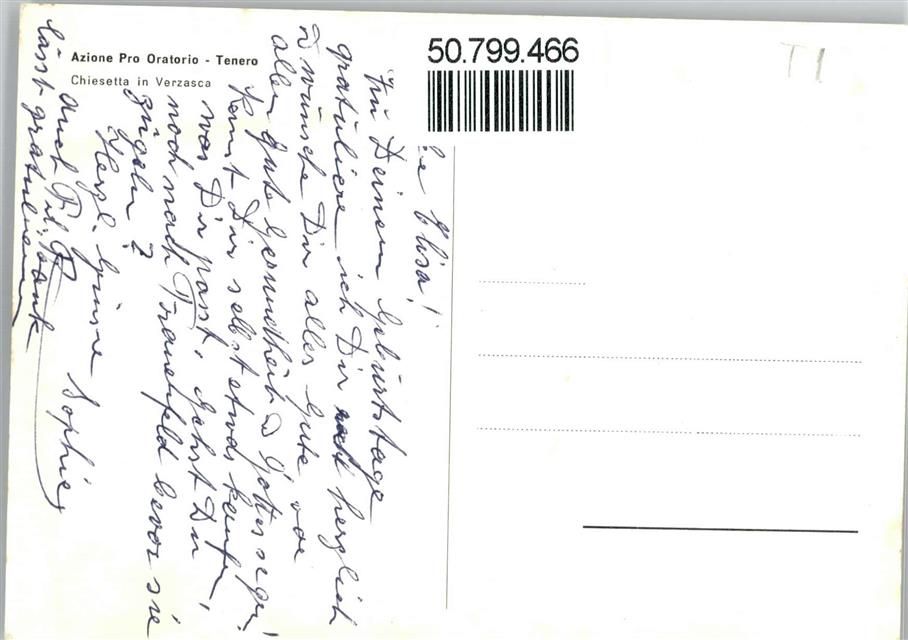 Azione Pro Oratorio - Tenero
Chiesetta in Verzasca
50.799.466
T1
Elisa!
Zu Deinem Geburtstage
gratuliere ich Dir recht herzlich
wünsche Dir alles Gute vor
allem gute Gesundheit Gottes segen!
Kannst Dir selbst etwas kaufen,
was Dir passt, gehst Du
noch nach Frauenfeld bevor sie
zügeln?
Herzl. Grüsse Sophie,
auch Frl.
lässt gratulieren